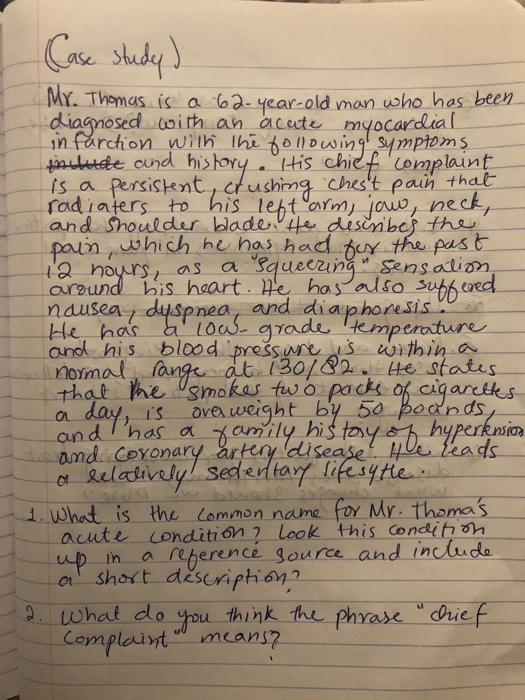 (Case study)
Mr. Thomas is a 62-year-old man who has been
diagnosed with an acute myocardial
infarction with the following symptoms
include and history. His chief complaint
is a persistent, crushing chest pain that
radiaters to his left arm, jaw, neck,
and shoulder blade. He describes the
pain, which he has had for the past
12 hours, as a "squeezing" sensation
around his heart. He has also suffered
nausea, dyspnea, and diaphoresis.
He has a low-grade temperature
and his blood pressure is within a
normal range at 130/82. He states
that he smokes two packs of cigarettes
a day, is overweight by 50 pounds,
and has a family history of hypertension
and coronary artery disease. He leads
a relatively sedentary lifesytle.
1. What is the common name for Mr. Thoma's
acute condition? Look this condition
up in a reference source and include
a short description?
2. What do you think the phrase "chief
complaint" means?